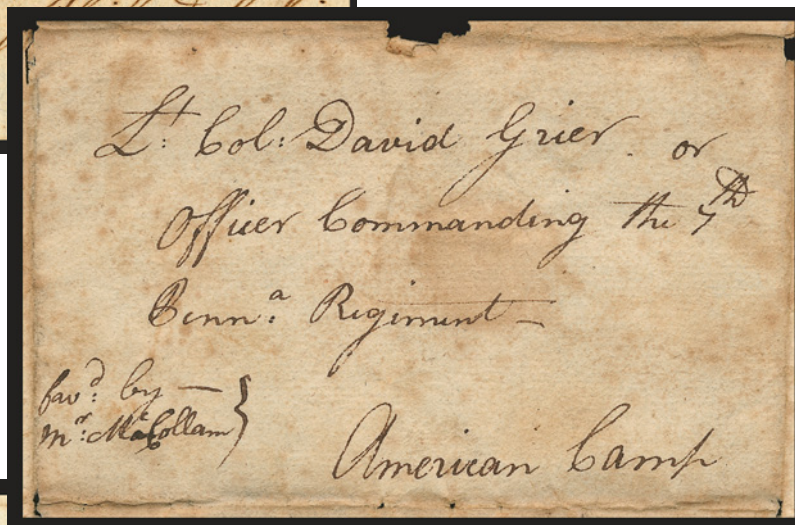 Lt: Col: David Grier or
Officer Commanding the 7th
Penna: Regiment —
favd: by —
Mr: McCollam
American Camp